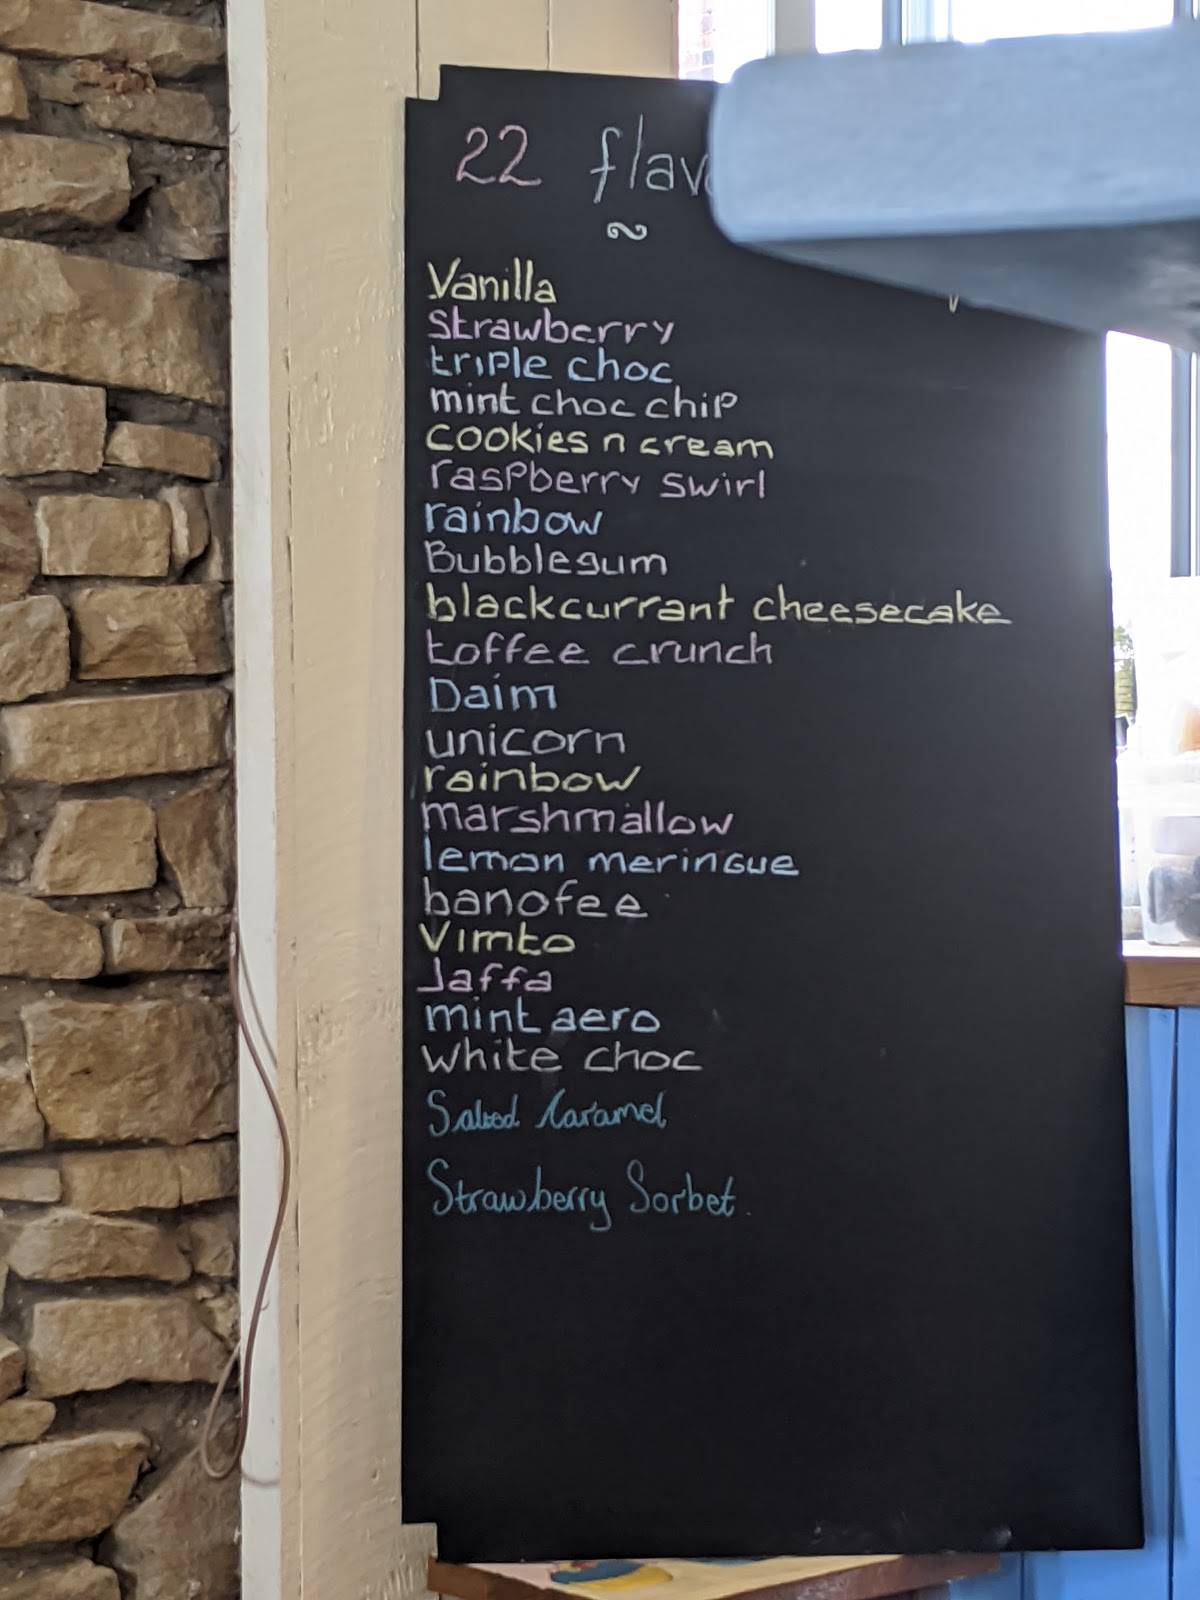 22 flav
Vanilla
Strawberry
triple choc
mint choc chip
cookies n cream
raspberry swirl
rainbow
Bubblegum
blackcurrant cheesecake
toffee crunch
Daim
unicorn
rainbow
marshmallow
lemon meringue
banofee
Vimto
Jaffa
mint aero
white choc
Salted Caramel
Strawberry Sorbet.